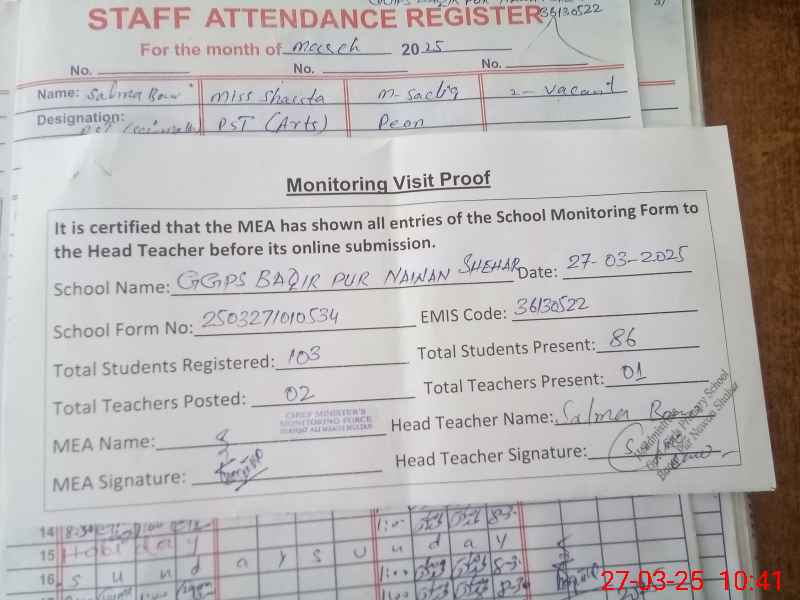 STAFF ATTENDANCE REGISTER 36130522
For the month of March 2025
No. No. No.
Name: Salma Miss Shaista M-Sadiq 2- Vacant
Designation: PST (Arts) Peon
Monitoring Visit Proof
It is certified that the MEA has shown all entries of the School Monitoring Form to
the Head Teacher before its online submission.
School Name: GGPS BAQIR PUR NAWAN SHEHAR Date: 27-03-2025
School Form No: 2503271010534 EMIS Code: 36130522
Total Students Registered: 103 Total Students Present: 86
Total Teachers Posted: 02 Total Teachers Present: 01
CHIEF MINISTER'S
MONITORING FORCE
MEA Name: Head Teacher Name: Salma
MEA Signature: Head Teacher Signature:
14 8:30
15 Holiday
16 Sunday Sunday
27-03-25 10:41